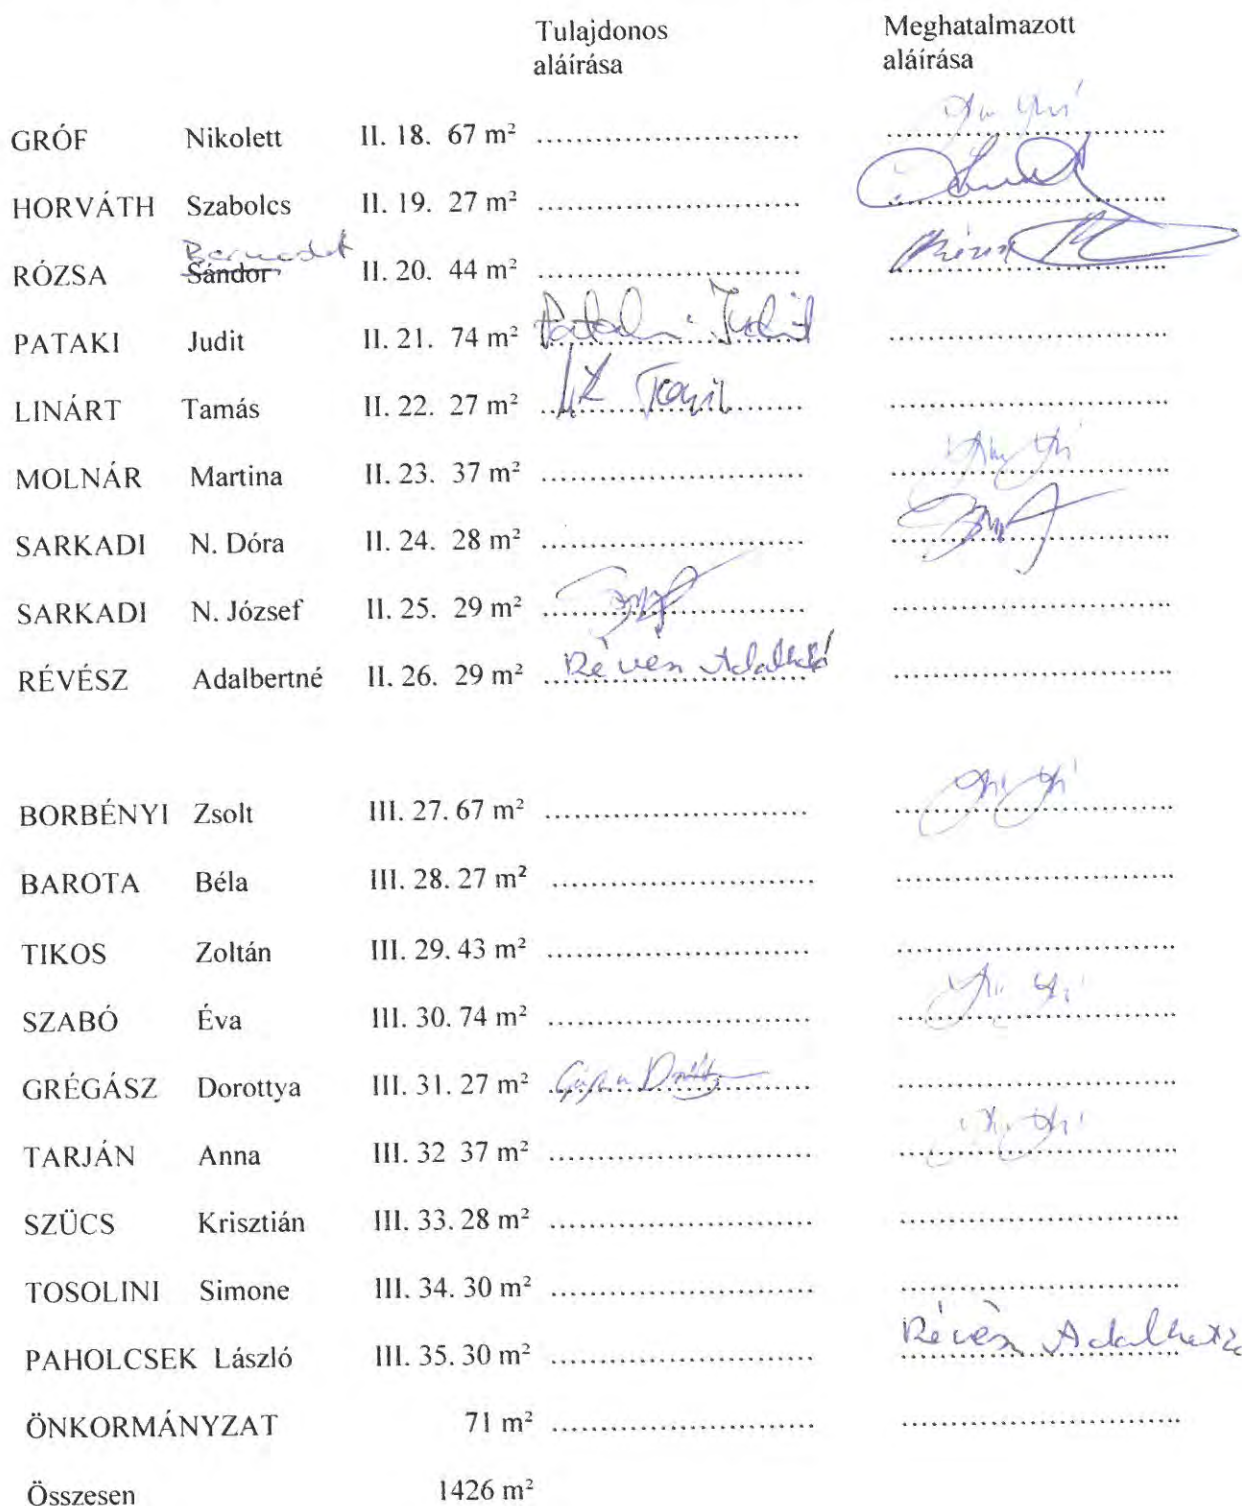 Tulajdonos Meghatalmazott
aláírása aláírása
GRÓF Nikolett II. 18. 67 m² .............................. ..............................
HORVÁTH Szabolcs II. 19. 27 m² .............................. ..............................
Bernadet
RÓZSA Sándor II. 20. 44 m² .............................. ..............................
PATAKI Judit II. 21. 74 m² Pataki Judit ..............................
LINÁRT Tamás II. 22. 27 m² .............................. ..............................
MOLNÁR Martina II. 23. 37 m² .............................. ..............................
SARKADI N. Dóra II. 24. 28 m² .............................. ..............................
SARKADI N. József II. 25. 29 m² .............................. ..............................
RÉVÉSZ Adalbertné II. 26. 29 m² Révész Adalbertné ..............................
BORBÉNYI Zsolt III. 27. 67 m² .............................. ..............................
BAROTA Béla III. 28. 27 m² .............................. ..............................
TIKOS Zoltán III. 29. 43 m² .............................. ..............................
SZABÓ Éva III. 30. 74 m² .............................. ..............................
GRÉGÁSZ Dorottya III. 31. 27 m² .............................. ..............................
TARJÁN Anna III. 32 37 m² .............................. ..............................
SZÜCS Krisztián III. 33. 28 m² .............................. ..............................
TOSOLINI Simone III. 34. 30 m² .............................. ..............................
PAHOLCSEK László III. 35. 30 m² .............................. Révész Adalbertné
ÖNKORMÁNYZAT 71 m² .............................. ..............................
Összesen 1426 m²